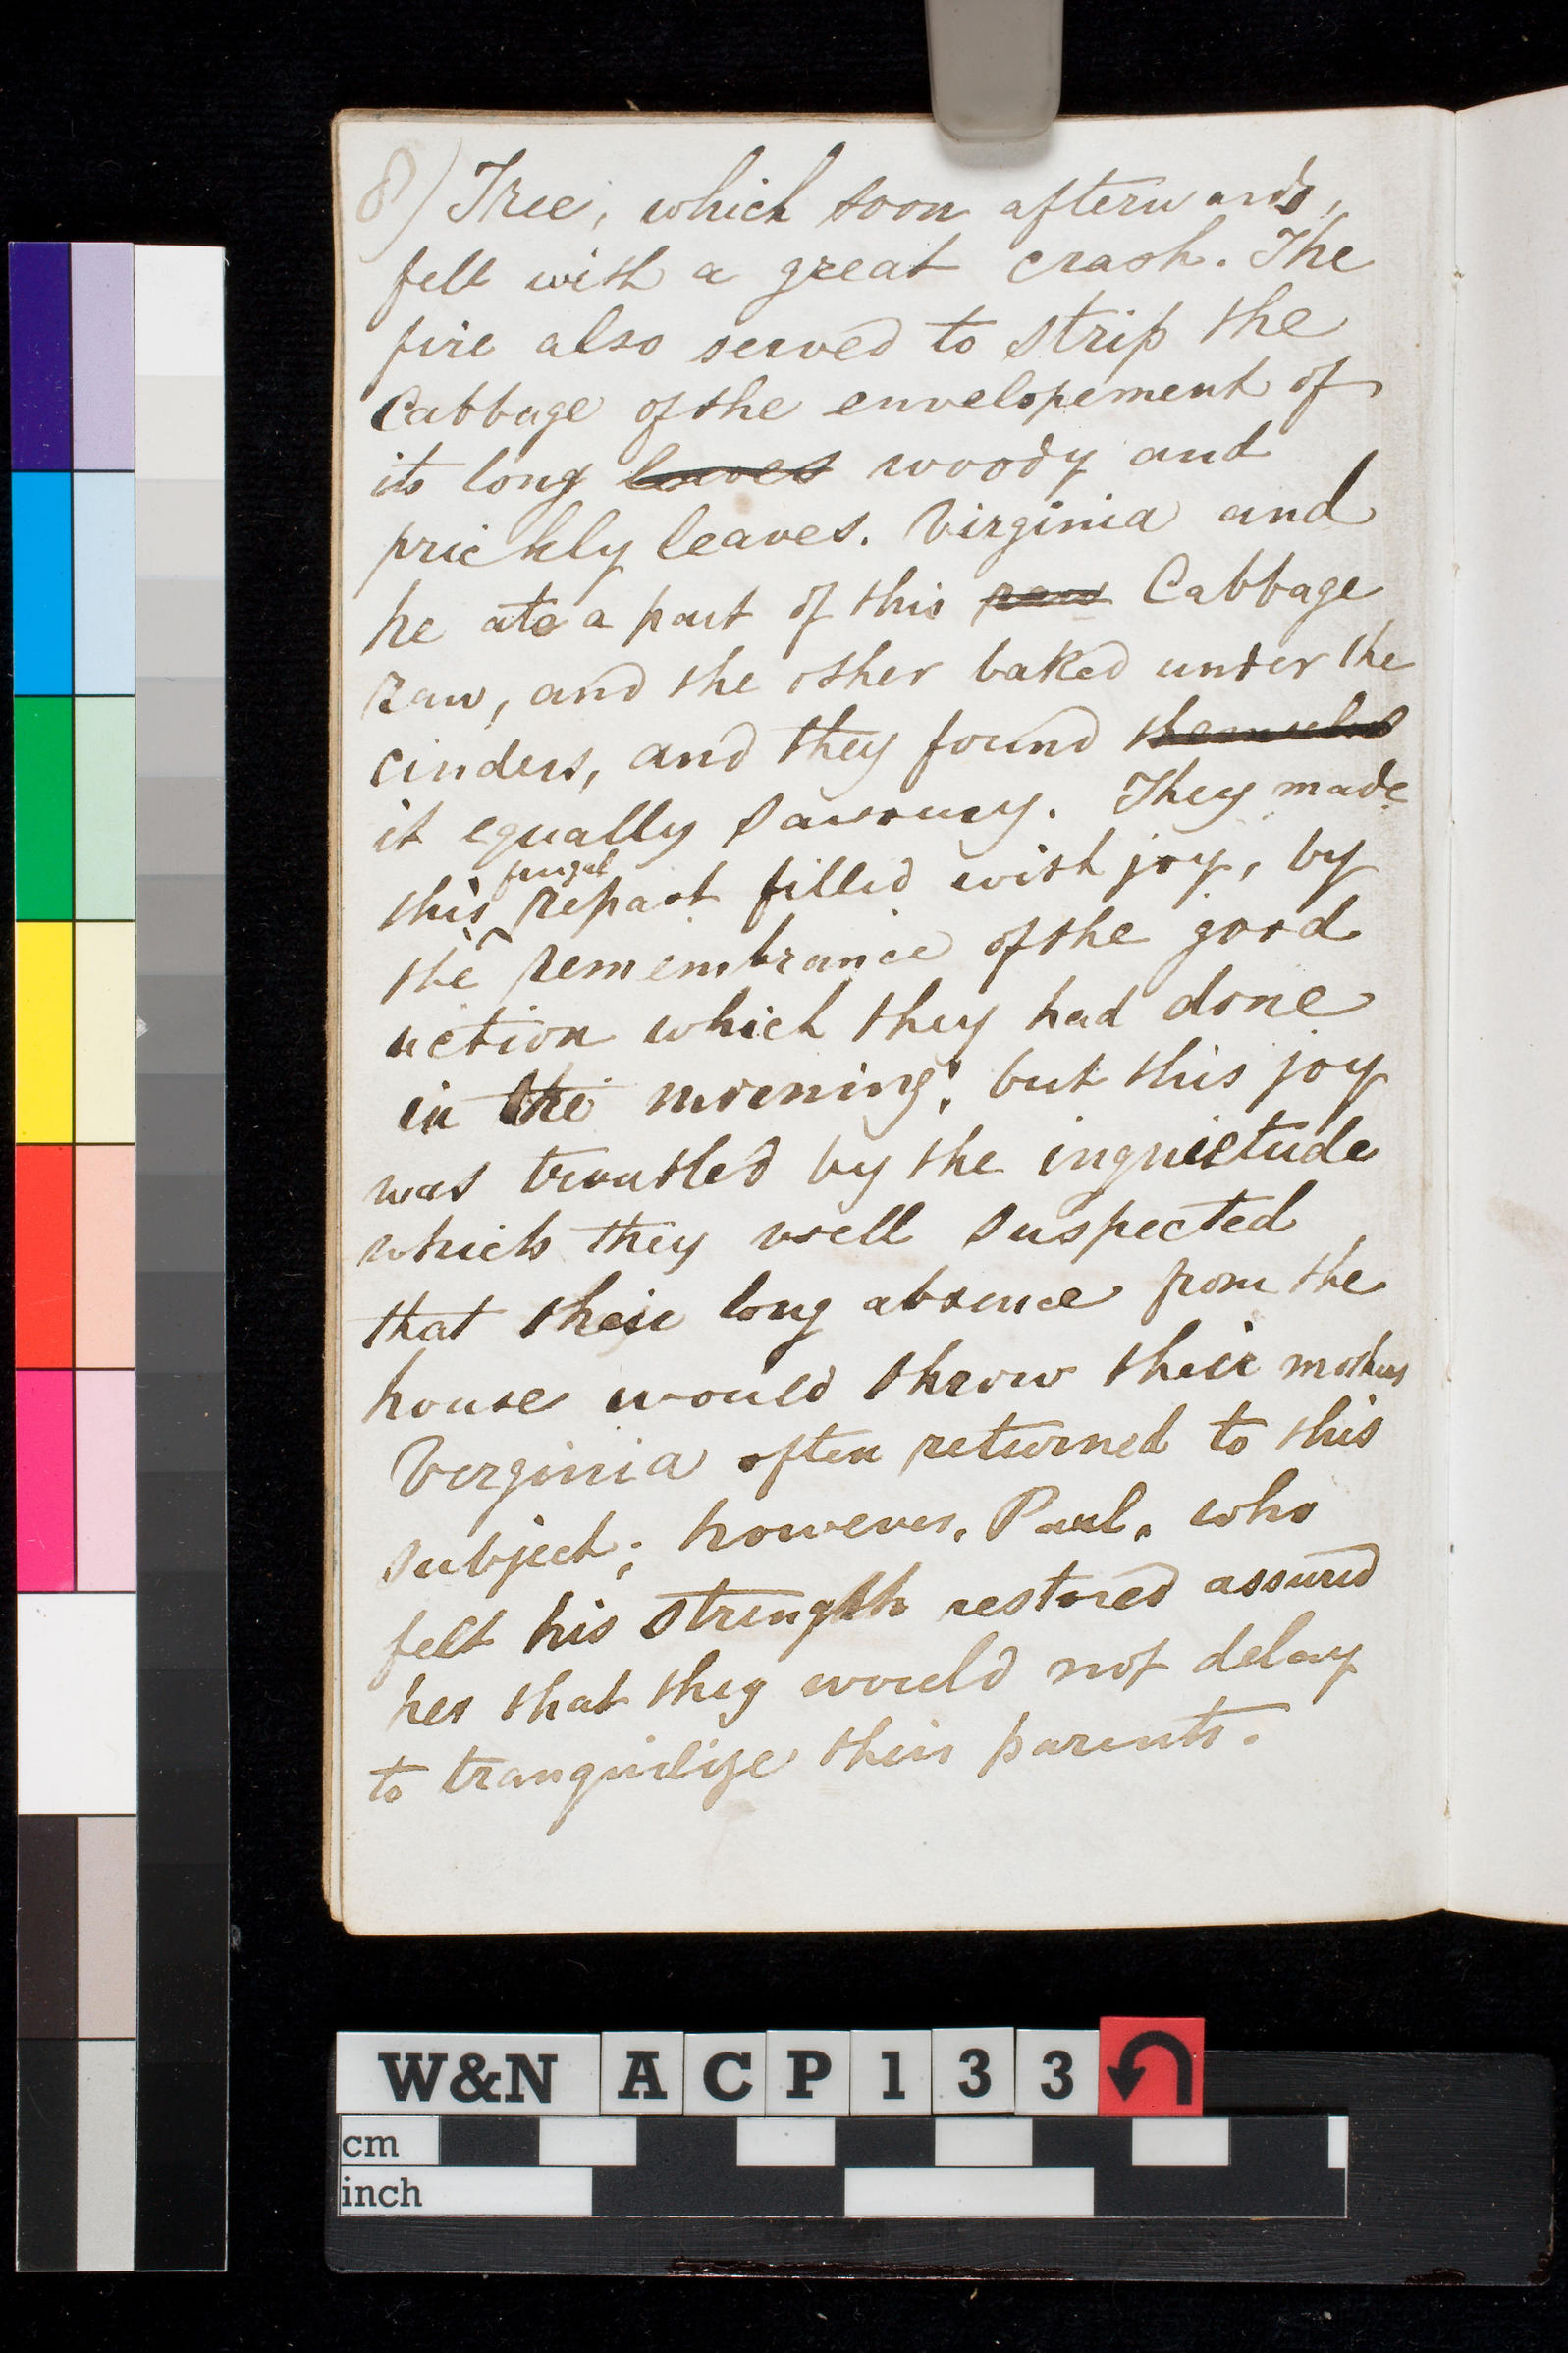 8) Tree, which soon afterwards,
fell with a great crash. The
fire also served to strip the
Cabbage of the envelopement of
its long leaves woody and
prickly leaves. Virginia and
he ate a part of this raw Cabbage
raw, and the other baked under the
cinders, and they found themselves
it equally savoury. They made
frugal
this repast filled with joy, by
the remembrance of the good
action which they had done
in the morning; but this joy
was troubled by the inquietude
which they well suspected
that their long absence from the
house would throw their mothers
Virginia often returned to this
subject; however, Paul, who
felt his strength restored assured
her that they would not delay
to tranquilize their parents.
W&N A C P 1 3 3
cm
inch